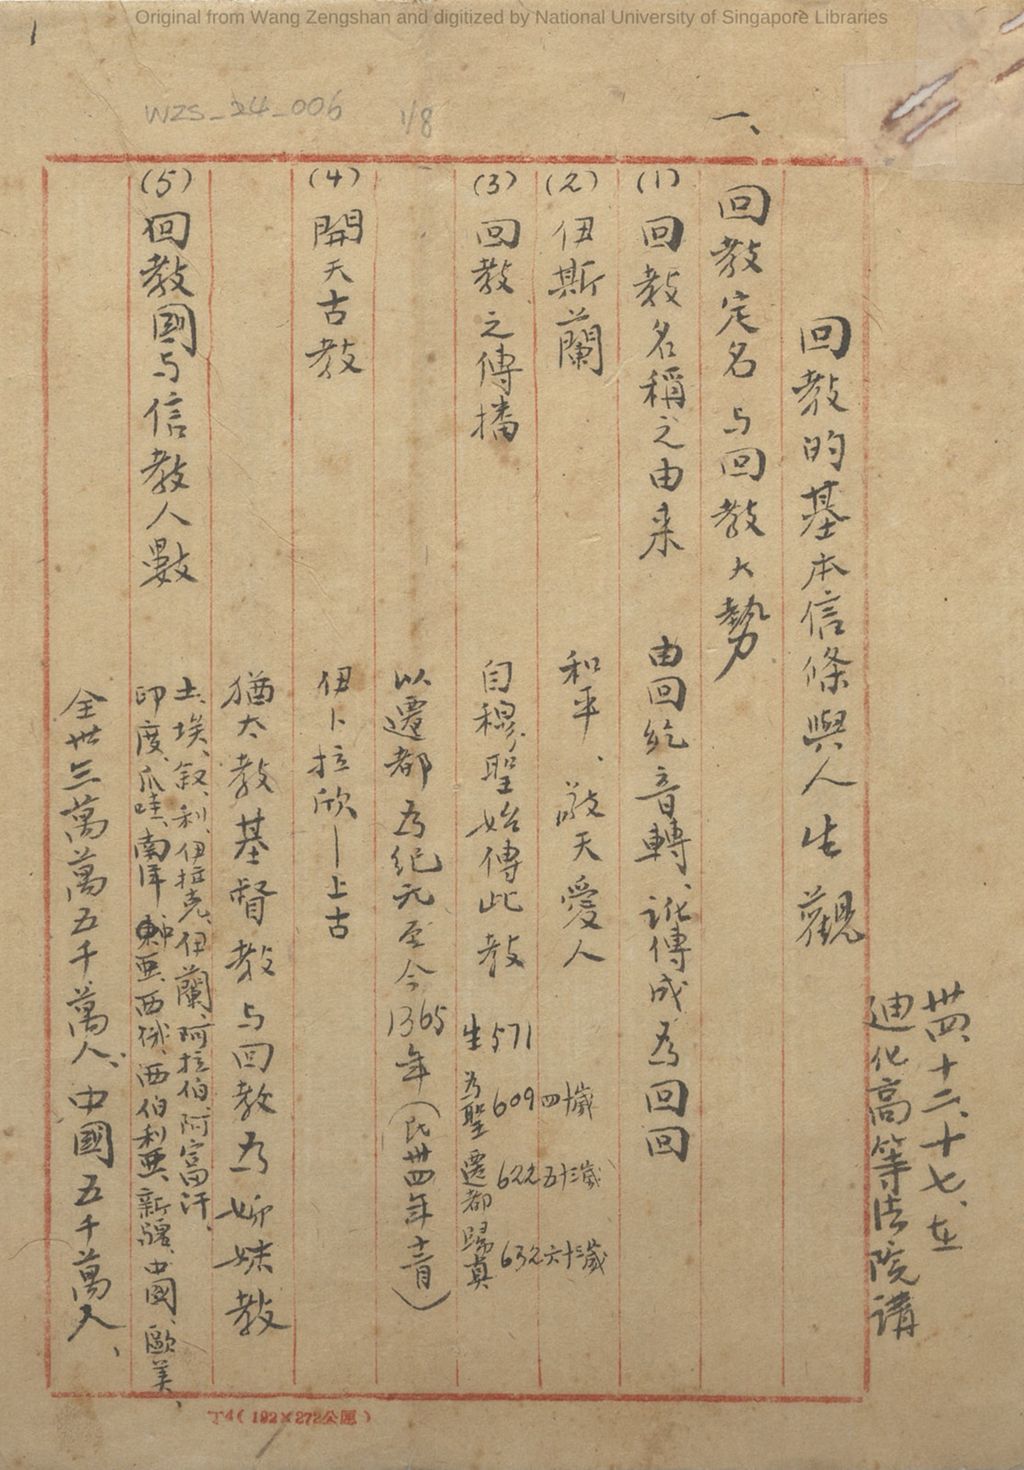 Original from Wang Zengshan and digitized by National University of Singapore Libraries
1
WZS_24_006
1/8
卅四、十二、十七、在
迪化高等法院講
回教的基本信條與人生觀
一、
回教定名与回教大勢
(1) 回教名稱之由来 由回紇音轉、訛傳成為回回
(2) 伊斯蘭 和平、敬天愛人
(3) 回教之傳播 自穆聖始傳此教
生571
為聖609四十歲
遷都622五十三歲
歸真632六十三歲
以遷都為紀元至今1365年(民卅四年十二月)
(4) 開天古教 伊卜拉欣—上古
猶太教基督教与回教為姊妹教
(5) 回教國与信教人數 土、埃、叙、利、伊拉克、伊蘭、阿拉伯、阿富汗、
印度、爪哇、南洋 亞、西 西伯利亞、新疆、中國、歐美、
全世三萬萬五千萬人、中國五千萬人、
丁4(192×272公厘)